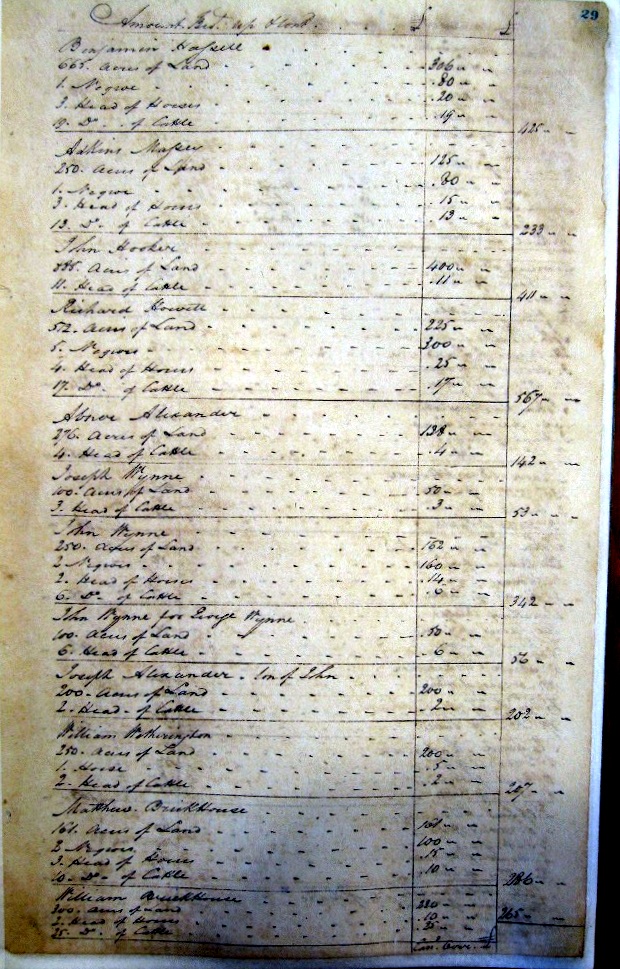 29
Amount Bro.t up & Cont. £ £
Benjamin Hassell
665. Acres of Land 306
1. Negroe 80
3. Head of Horses 20
19. Do. of Cattle 19
425
Adkins Massey
250. Acres of Land 125
1. Negroe 80
3. Head of Horses 15
13. Do. of Cattle 13
233
John Hooker
885. Acres of Land 400
11. Head of Cattle 11
411
Richard Howett
512. Acres of Land 225
5. Negroes 300
4. Head of Horses 25
17. Do. of Cattle 17
567
Abner Alexander
276. Acres of Land 138
4. Head of Cattle 4
142
Joseph Wynne
100. Acres of Land 50
3. Head of Cattle 3
53
John Wynne
250. Acres of Land 162
2. Negroes 160
2. Head of Horses 14
6. Do. of Cattle 6
342
John Wynne for George Wynne
100. Acres of Land 50
6. Head of Cattle 6
56
Joseph Alexander. Son of John
200. Acres of Land 200
2. Head of Cattle 2
202
William Wetherington
250. Acres of Land 200
1. Horse 5
2. Head of Cattle 2
207
Matthew BrickHouse
161. Acres of Land 161
2. Negroes 100
3. Head of Horses 15
10. Do. of Cattle 10
286
William BrickHouse
300. Acres of Land 230
2. Head of Horses 10
25. Do. of Cattle 25
265
Car.d Over £